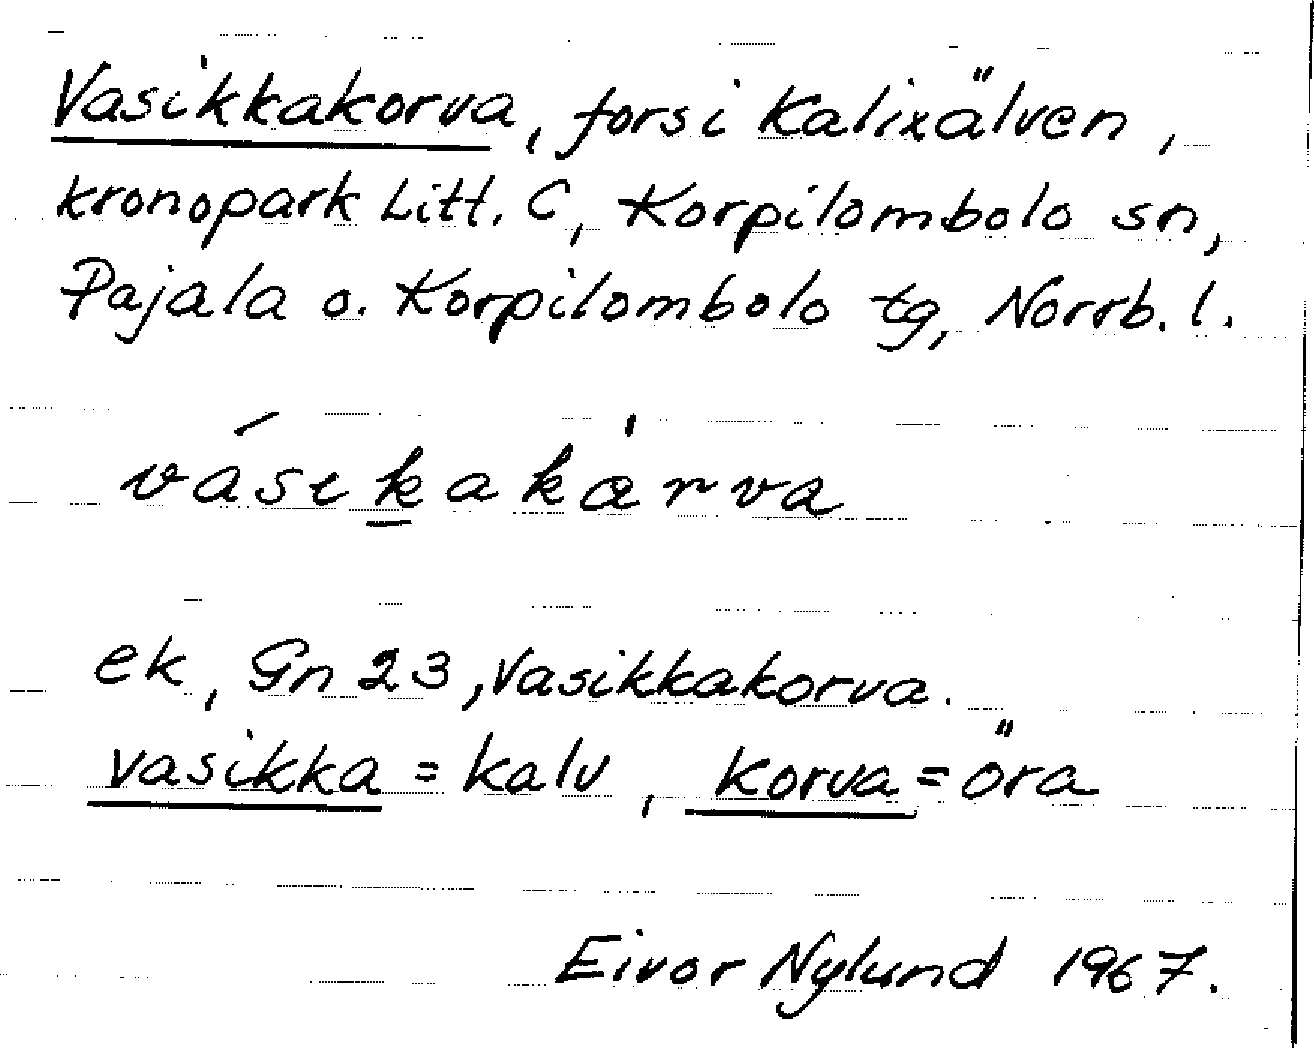 Vasikkakorva, fors i Kalixälven,
kronopark Litt. C, Korpilombolo sn,
Pajala o. Korpilombolo tg, Norrb. l.
vásikakårva
ek, Gn 23, Vasikkakorva.
vasikka = kalv, korva = öra
Eivor Nylund 1967.